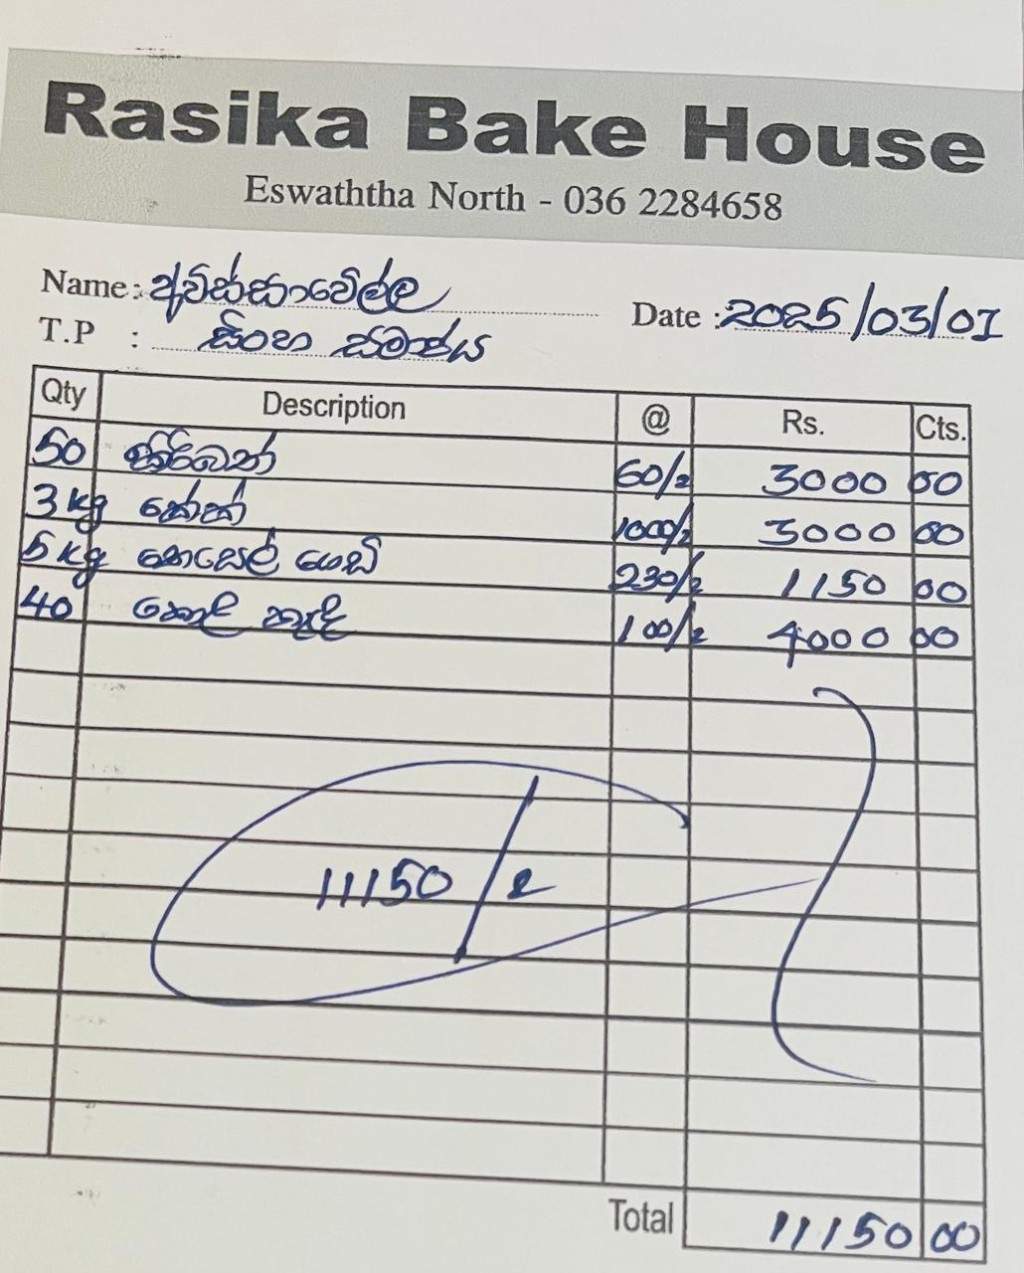 Rasika Bake House
Eswaththa North - 036 2284658
Name: අවිස්සාවේල්ල Date: 2025/03/01
T.P : සිංහ සමාජය
Qty Description @ Rs. Cts.
50 කිරිබත් 60/= 3000 00
3 kg කේක් 1000/= 3000 00
5 kg කෙසෙල් ගෙඩි 230/= 1150 00
40 කොළ කැඳ 100/= 4000 00
11150/=
Total 11150 00